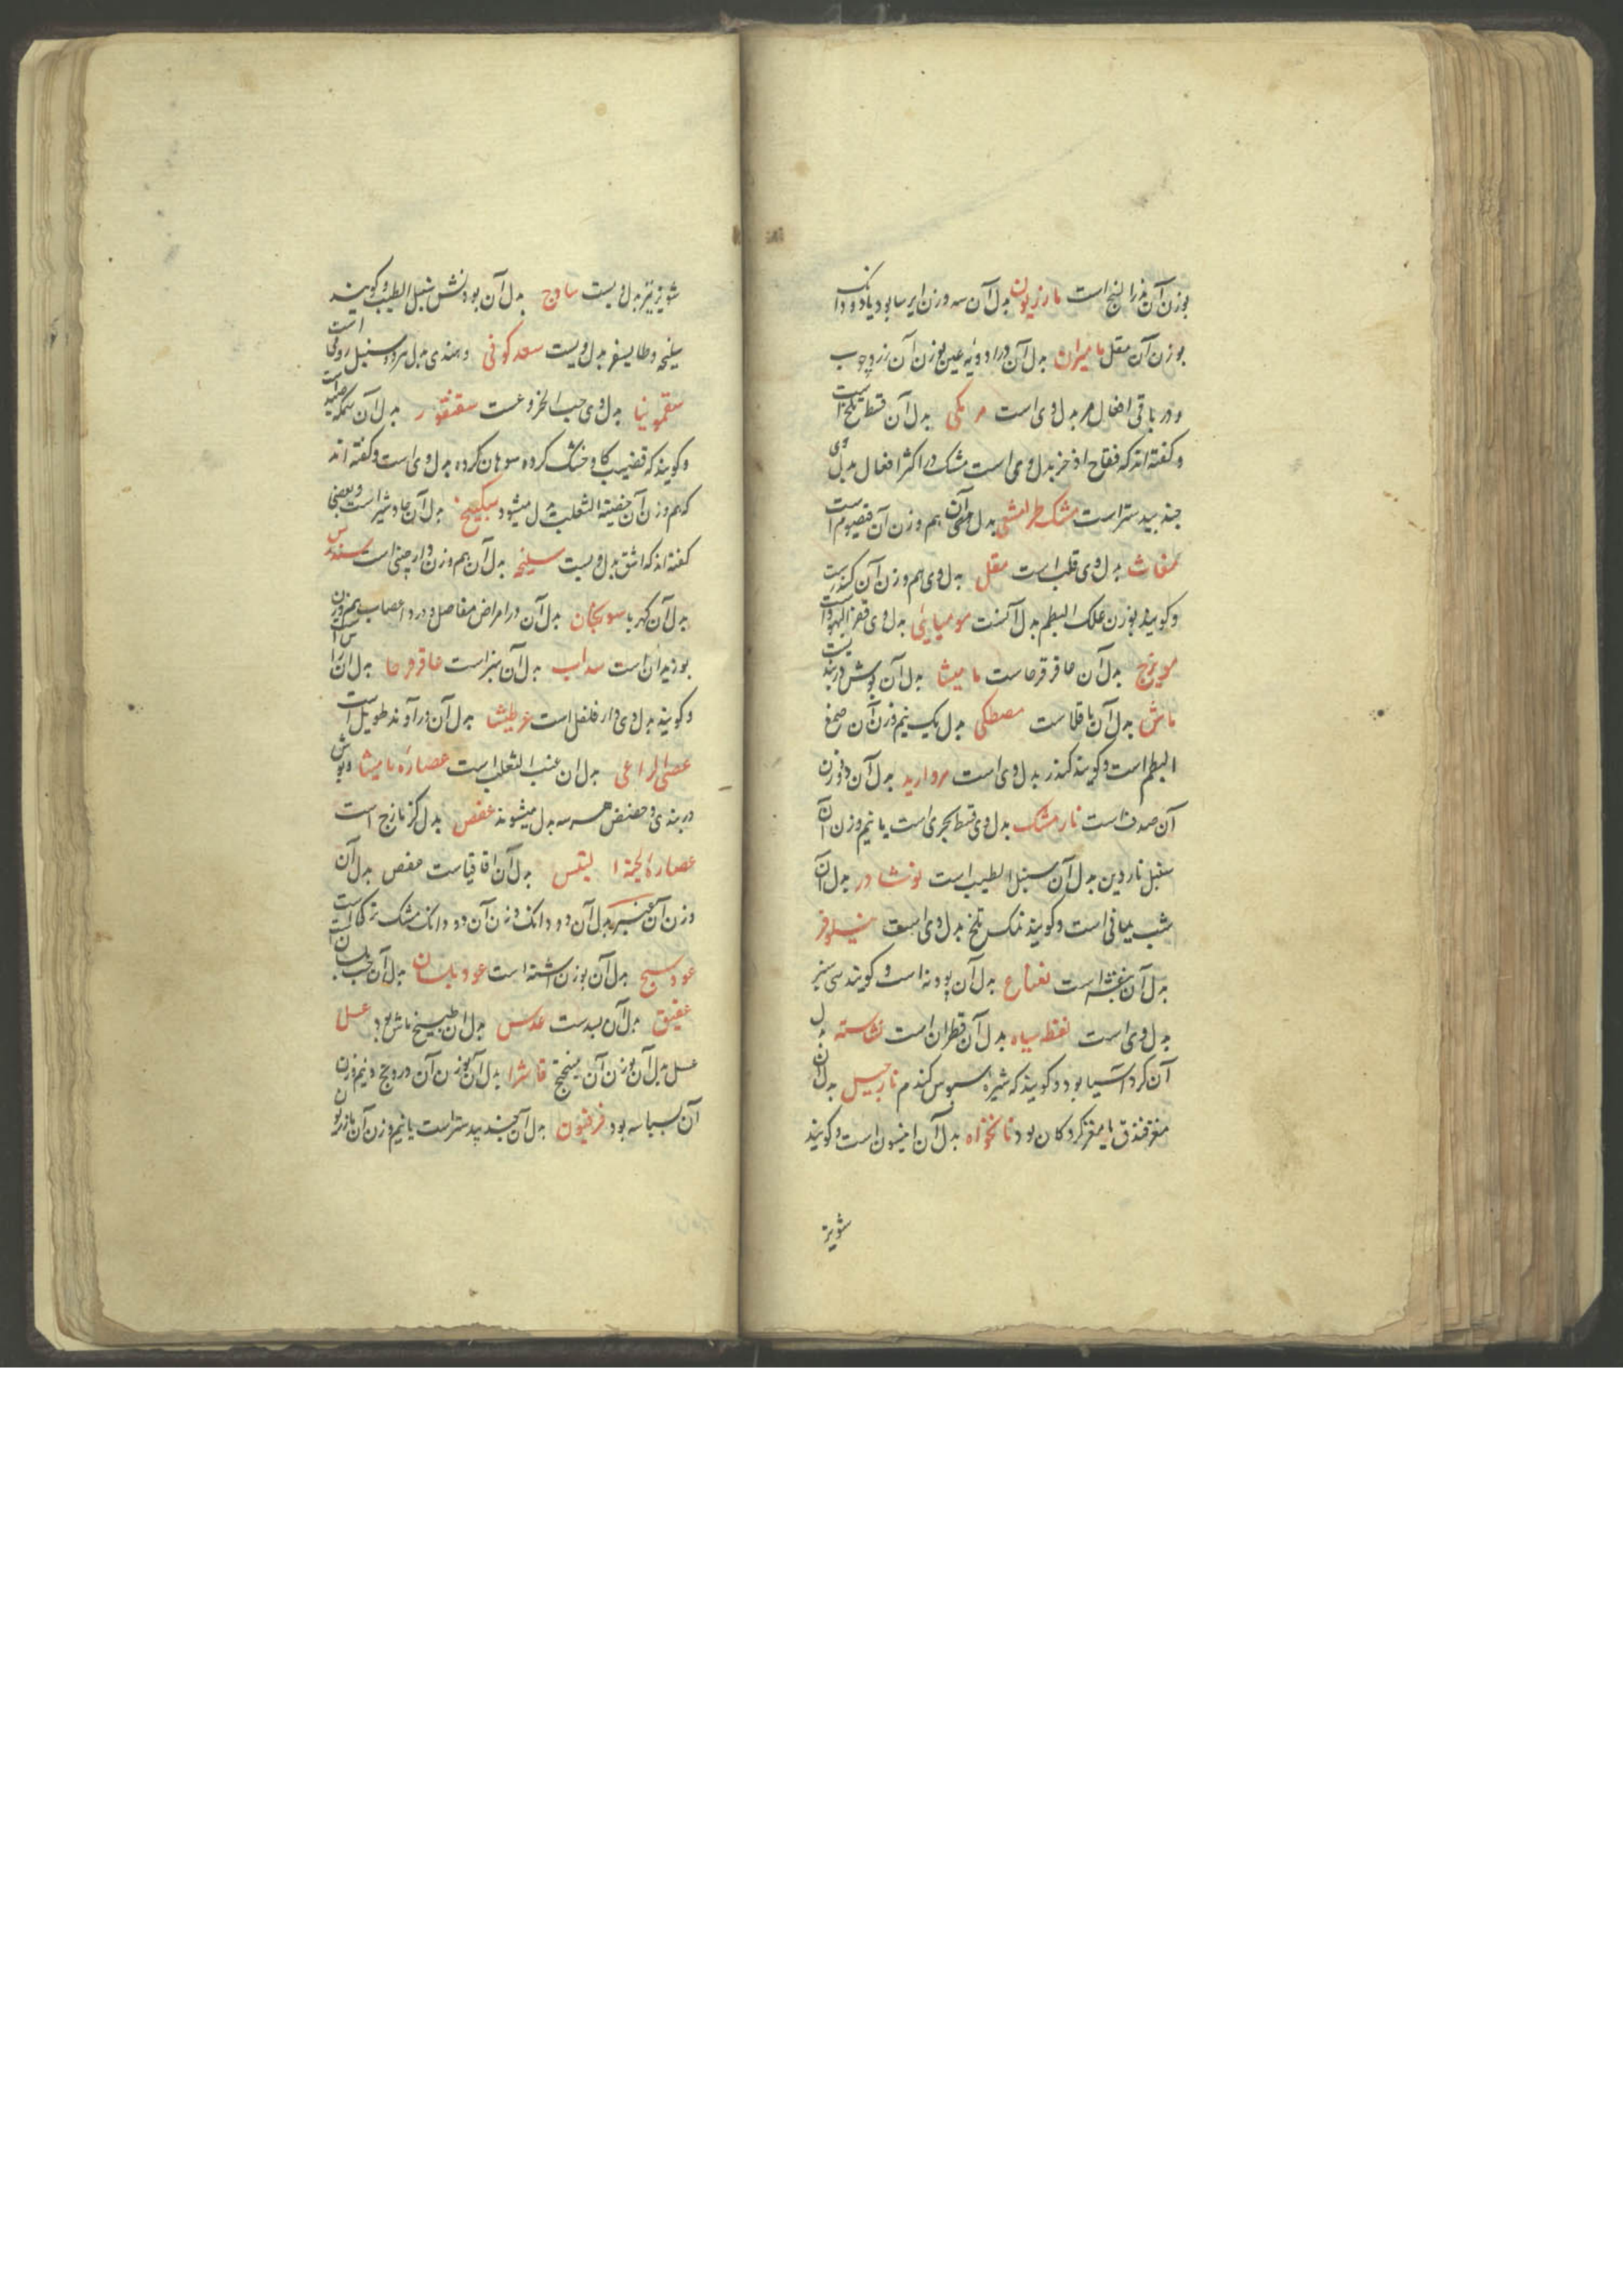 بوزن آن بذرالبنج است مازریون بدل آن سه وزن ایرسا بود یا دو دانک
بوزن آن مقل مامیران بدل آن در ادویه عین بوزن آن زردچوب
و در باقی افعال مر بدل وی است مر مکی بدل آن قسط تلخ است
و گفته اند که فقاح اذخر بدل وی است مشک در اکثر افعال بدل وی
جند بیدستر است مشک طرامشی بدل وی هم وزن آن قیصوم است
مغاث بدل وی قلب است مقل بدل وی هم وزن آن کندرست
و کویند بوزن علک البطم بدل آنست مومیایی بدل وی قفر الیهود است
مویزج بدل آن عاقرقرحاست مامیثا بدل آن بوش دربندیست
ماش بدل آن باقلاست مصطکی بدل یک نیم وزن آن صمغ
البطم است و کویند کندر بدل وی است مروارید بدل آن دو وزن
آن صدف است نارمشک بدل وی قسط بحری است یا نیم وزن آن
سنبل ناردین بدل آن سنبل الطیب است نوشادر بدل آن
شب یمانی است و کویند نمک تلخ بدل وی است نیلوفر
بدل آن بنفشه است نعناع بدل آن پودنه است و کویند سی سنبر
بدل وی است نفط سیاه بدل آن قطران است نشاسته بدل
آن کرد آسیا بود و کویند که شیره سبوس کندم نارجیل بدل آن
مغز فندق یا مغز کردکان بود نانخواه بدل آن انیسون است و کویند
شونیز
شونیز نیز بدل ویست ساذج بدل آن بوزنش سنبل الطیب و کویند
سلیخه و طالیسفر بدل ویست سعد کوفی و هندی بدل مر و سنبل رومی است
سقمونیا بدل وی حب الخروعست سقنقور بدل آن سمکه صیدا است
و کویند که قضیب کاو خشک کرده سوهان کرده بدل وی است و گفته اند
که هم وزن آن خصیة الثعلب بدل میشود سکبینج بدل آن جاوشیر است و بعضی
گفته اند که اشق بدل ویست سلیخه بدل آن هم وزن دارچینی است سندروس
بدل آن کهربا سورنجان بدل آن در امراض مفاصل و درد اعصاب هم وزن
بوزیدان است سداب بدل آن است عاقرقرحا بدل آن
و کویند بدل وی دار فلفل است عرطنیثا بدل آن زراوند طویل است
عصی الراعی بدل آن عنب الثعلب است عصاره مامیثا بوش
دربندی و حضض هر سه بدل میشوند عفص بدل کزمازج است
عصاره لحیة التیس بدل آن اقاقیاست عفص بدل آن
وزن آن عنبر بدل آن دو دانک وزن آن و دو دانک مشک
عود سج بدل آن بوزن اشنه است عود بلسان بدل آن حب بلسان
عقیق بدل آن بسدست عدس بدل آن طبیخ ماش بود عسل
عسل بدل آن بوزن آن میبختج فاشرا بدل آن بوزن آن درونج و نیم وزن
آن بسباسه بود فرفیون بدل آن جند بیدستر است یا نیم وزن آن مازریون